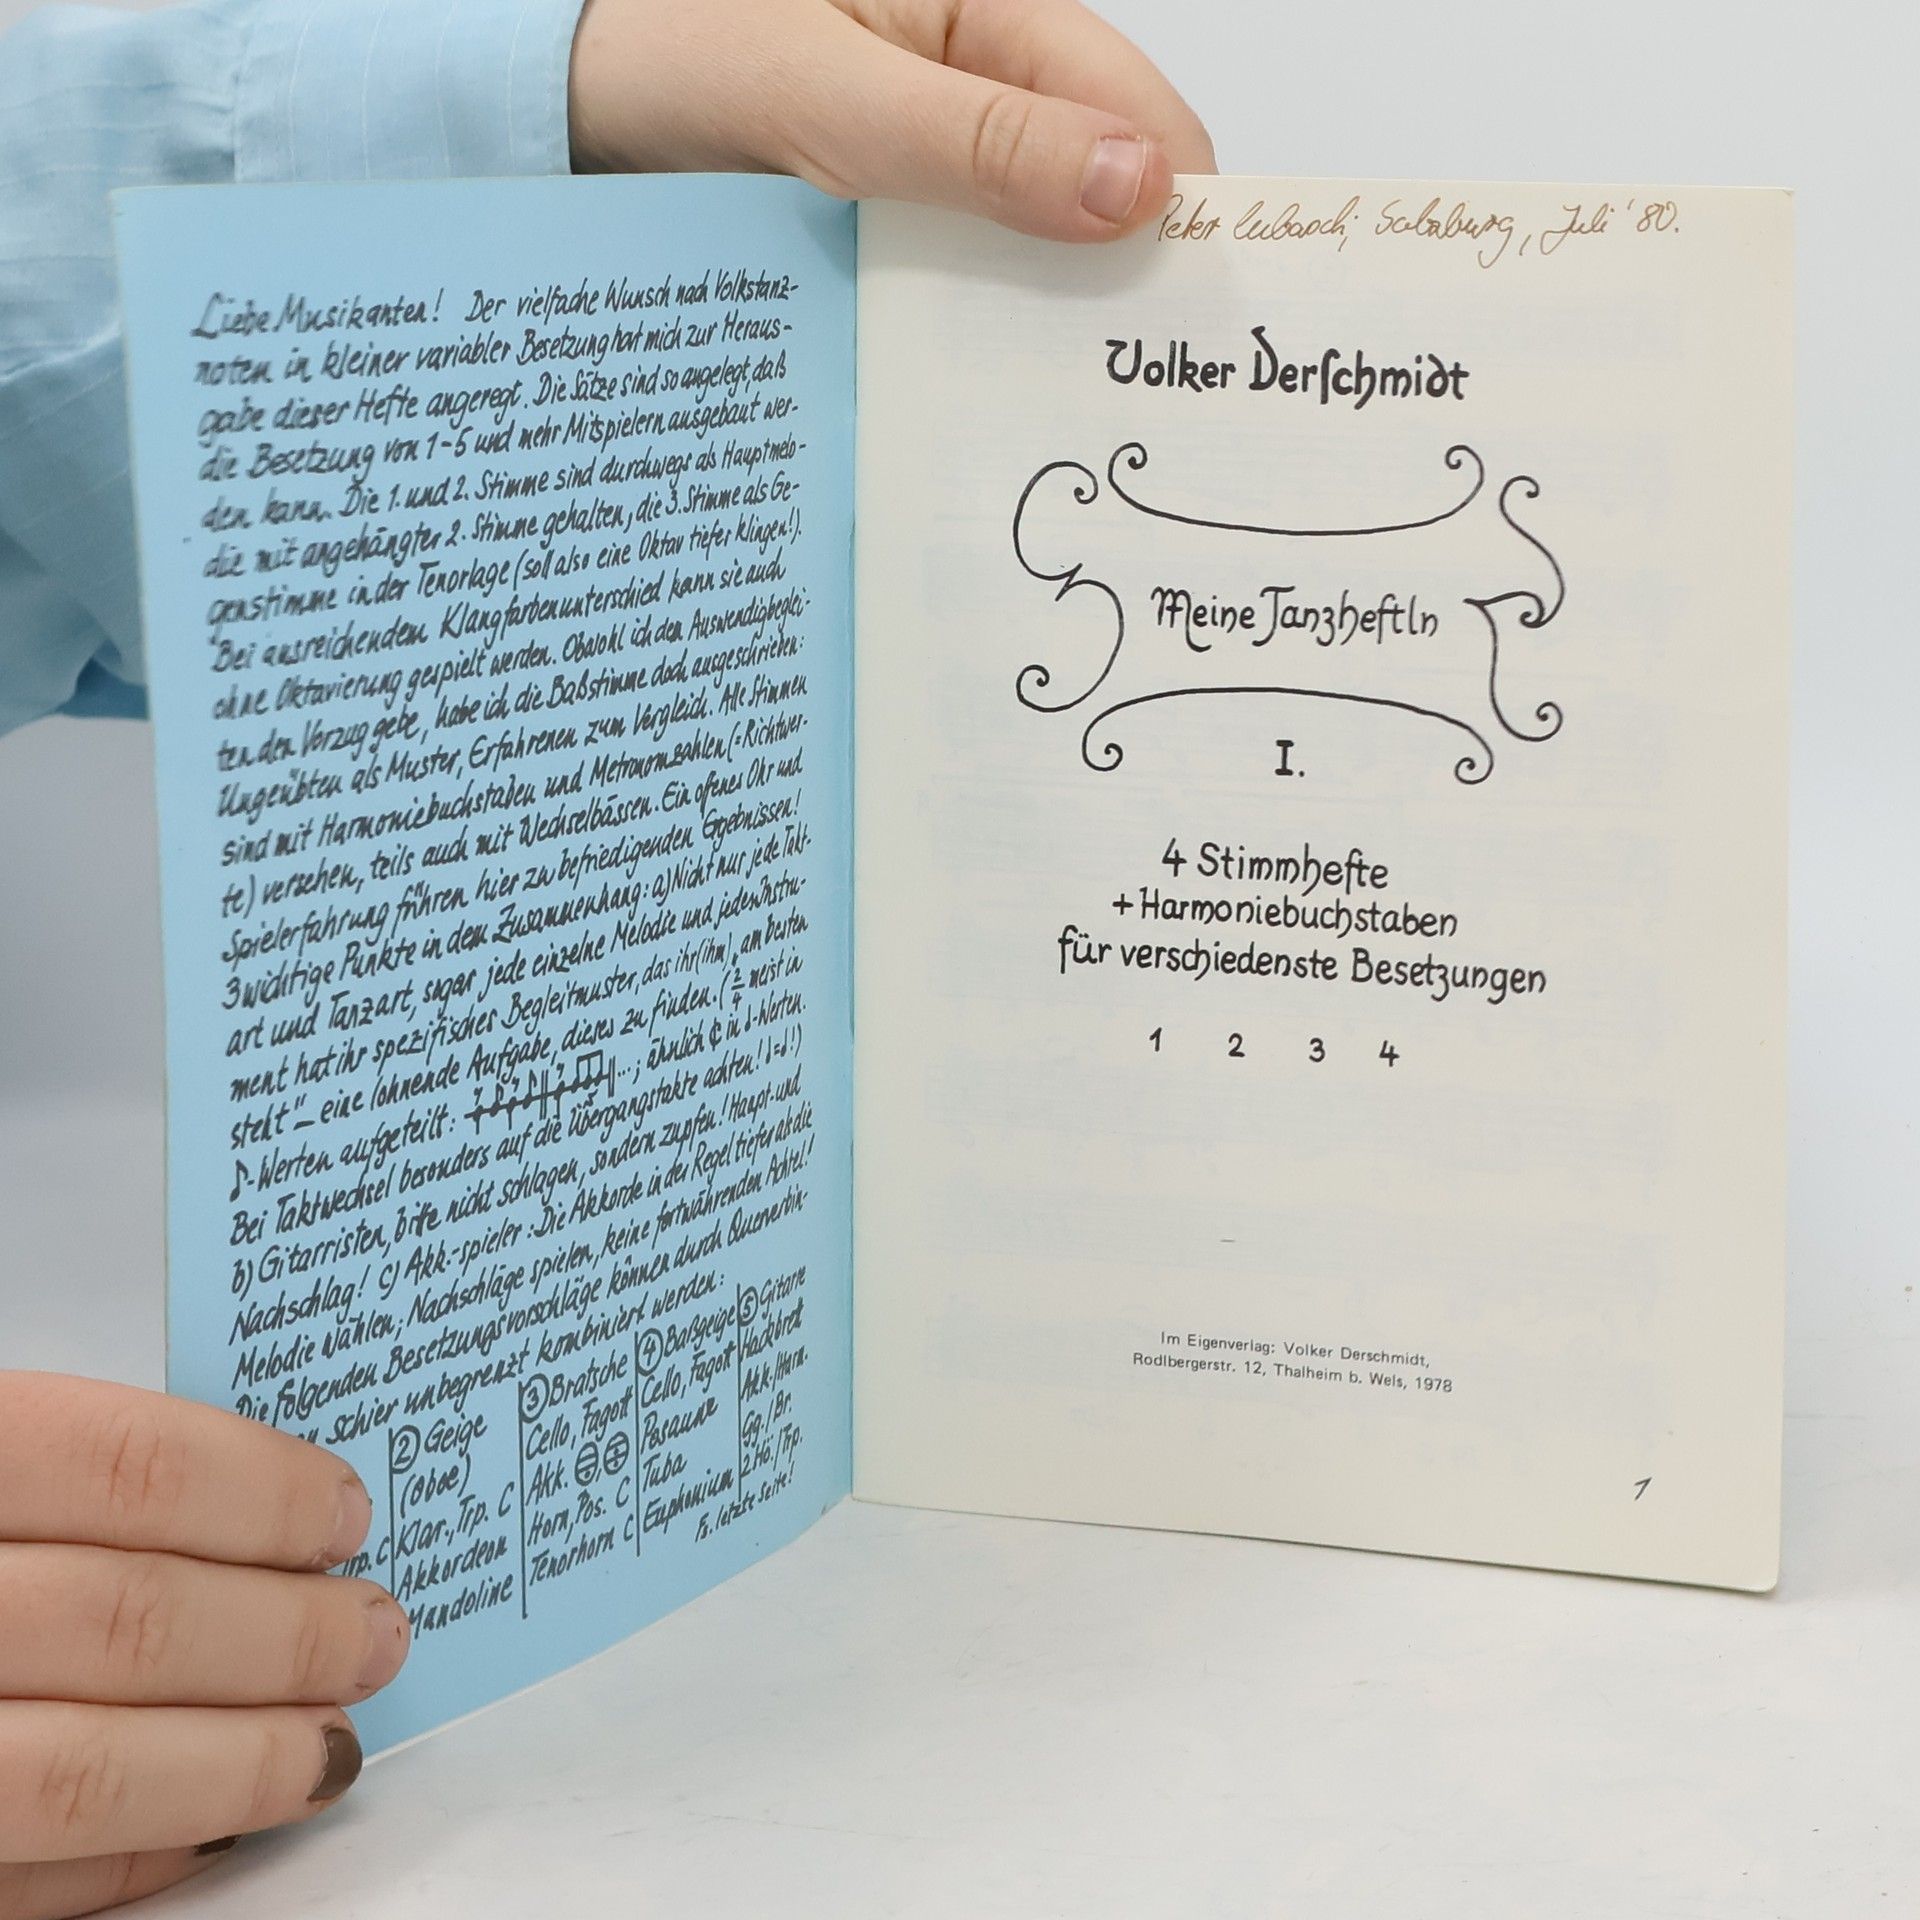 Liebe Musikanten! Der vielfache Wunsch nach Volkstanz-
noten in kleiner variabler Besetzung hat mich zur Heraus-
gabe dieser Hefte angeregt. Die Sätze sind so angelegt, daß
die Besetzung von 1-5 und mehr Mitspielern ausgebaut wer-
den kann. Die 1. und 2. Stimme sind durchwegs als Hauptmelo-
die mit angehängter 2. Stimme gehalten, die 3. Stimme als Ge-
genstimme in der Tenorlage (soll also eine Oktav tiefer klingen!).
Bei ausreichendem Klangfarbenunterschied kann sie auch
ohne Oktavierung gespielt werden. Obwohl ich den Auswendigbeglei-
ten den Vorzug gebe, habe ich die Baßstimme doch ausgeschrieben:
Ungeübten als Muster, Erfahrenen zum Vergleich. Alle Stimmen
sind mit Harmoniebuchstaben und Metronomzahlen (=Richtwer-
te) versehen, teils auch mit Wechselbässen. Ein offenes Ohr und
Spielerfahrung führen hier zu befriedigenden Ergebnissen!
3 wichtige Punkte in dem Zusammenhang: a) Nicht nur jede Takt-
art und Tanzart, sogar jede einzelne Melodie und jedes Instru-
ment hat ihr spezifisches Begleitmuster, das ihr (ihm) „am besten
steht" – eine lohnende Aufgabe, dieses zu finden. (2/4 meist in
♪-Werten aufgeteilt: ...; ähnlich ¢ in ♩-Werten.
Bei Taktwechsel besonders auf die Übergangstakte achten! ♩=♩!)
b) Gitarristen, bitte nicht schlagen, sondern zupfen! Haupt- und
Nachschlag! c) Akk.-spieler: Die Akkorde in der Regel tiefer als die
Melodie wählen; Nachschläge spielen, keine fortwährenden Achtel!
Die folgenden Besetzungsvorschläge können durch Querverbin-
schier unbegrenzt kombiniert werden:
Trp. C
② Geige
(Oboe)
Klar., Trp. C
Akkordeon
Mandoline
③ Bratsche
Cello, Fagott
Akk.
Horn, Pos. C
Tenorhorn C
④ Baßgeige
Cello, Fagott
Posaune
Tuba
Euphonium
⑤ Gitarre
Hackbrett
Akk./Harm.
Gg./Br.
2 Hö./Trp.
Fs. letzte Seite!
Peter, Salzburg, Juli '80.
Volker Derschmidt
Meine Tanzheftln
I.
4 Stimmhefte
+ Harmoniebuchstaben
für verschiedenste Besetzungen
1 2 3 4
Im Eigenverlag: Volker Derschmidt,
Rodlbergerstr. 12, Thalheim b. Wels, 1978
1